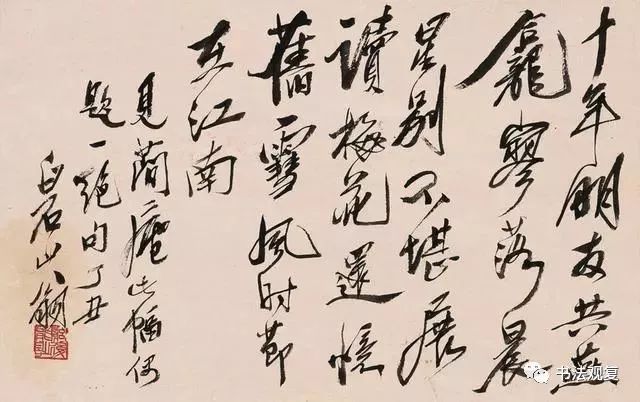 十年朋友共燕
龕寥落晨
星别不堪展
讀梅花還憶
舊雪風時節
在江南
見庵此幅偶
題一絕句丁丑
白石山翁
书法观复